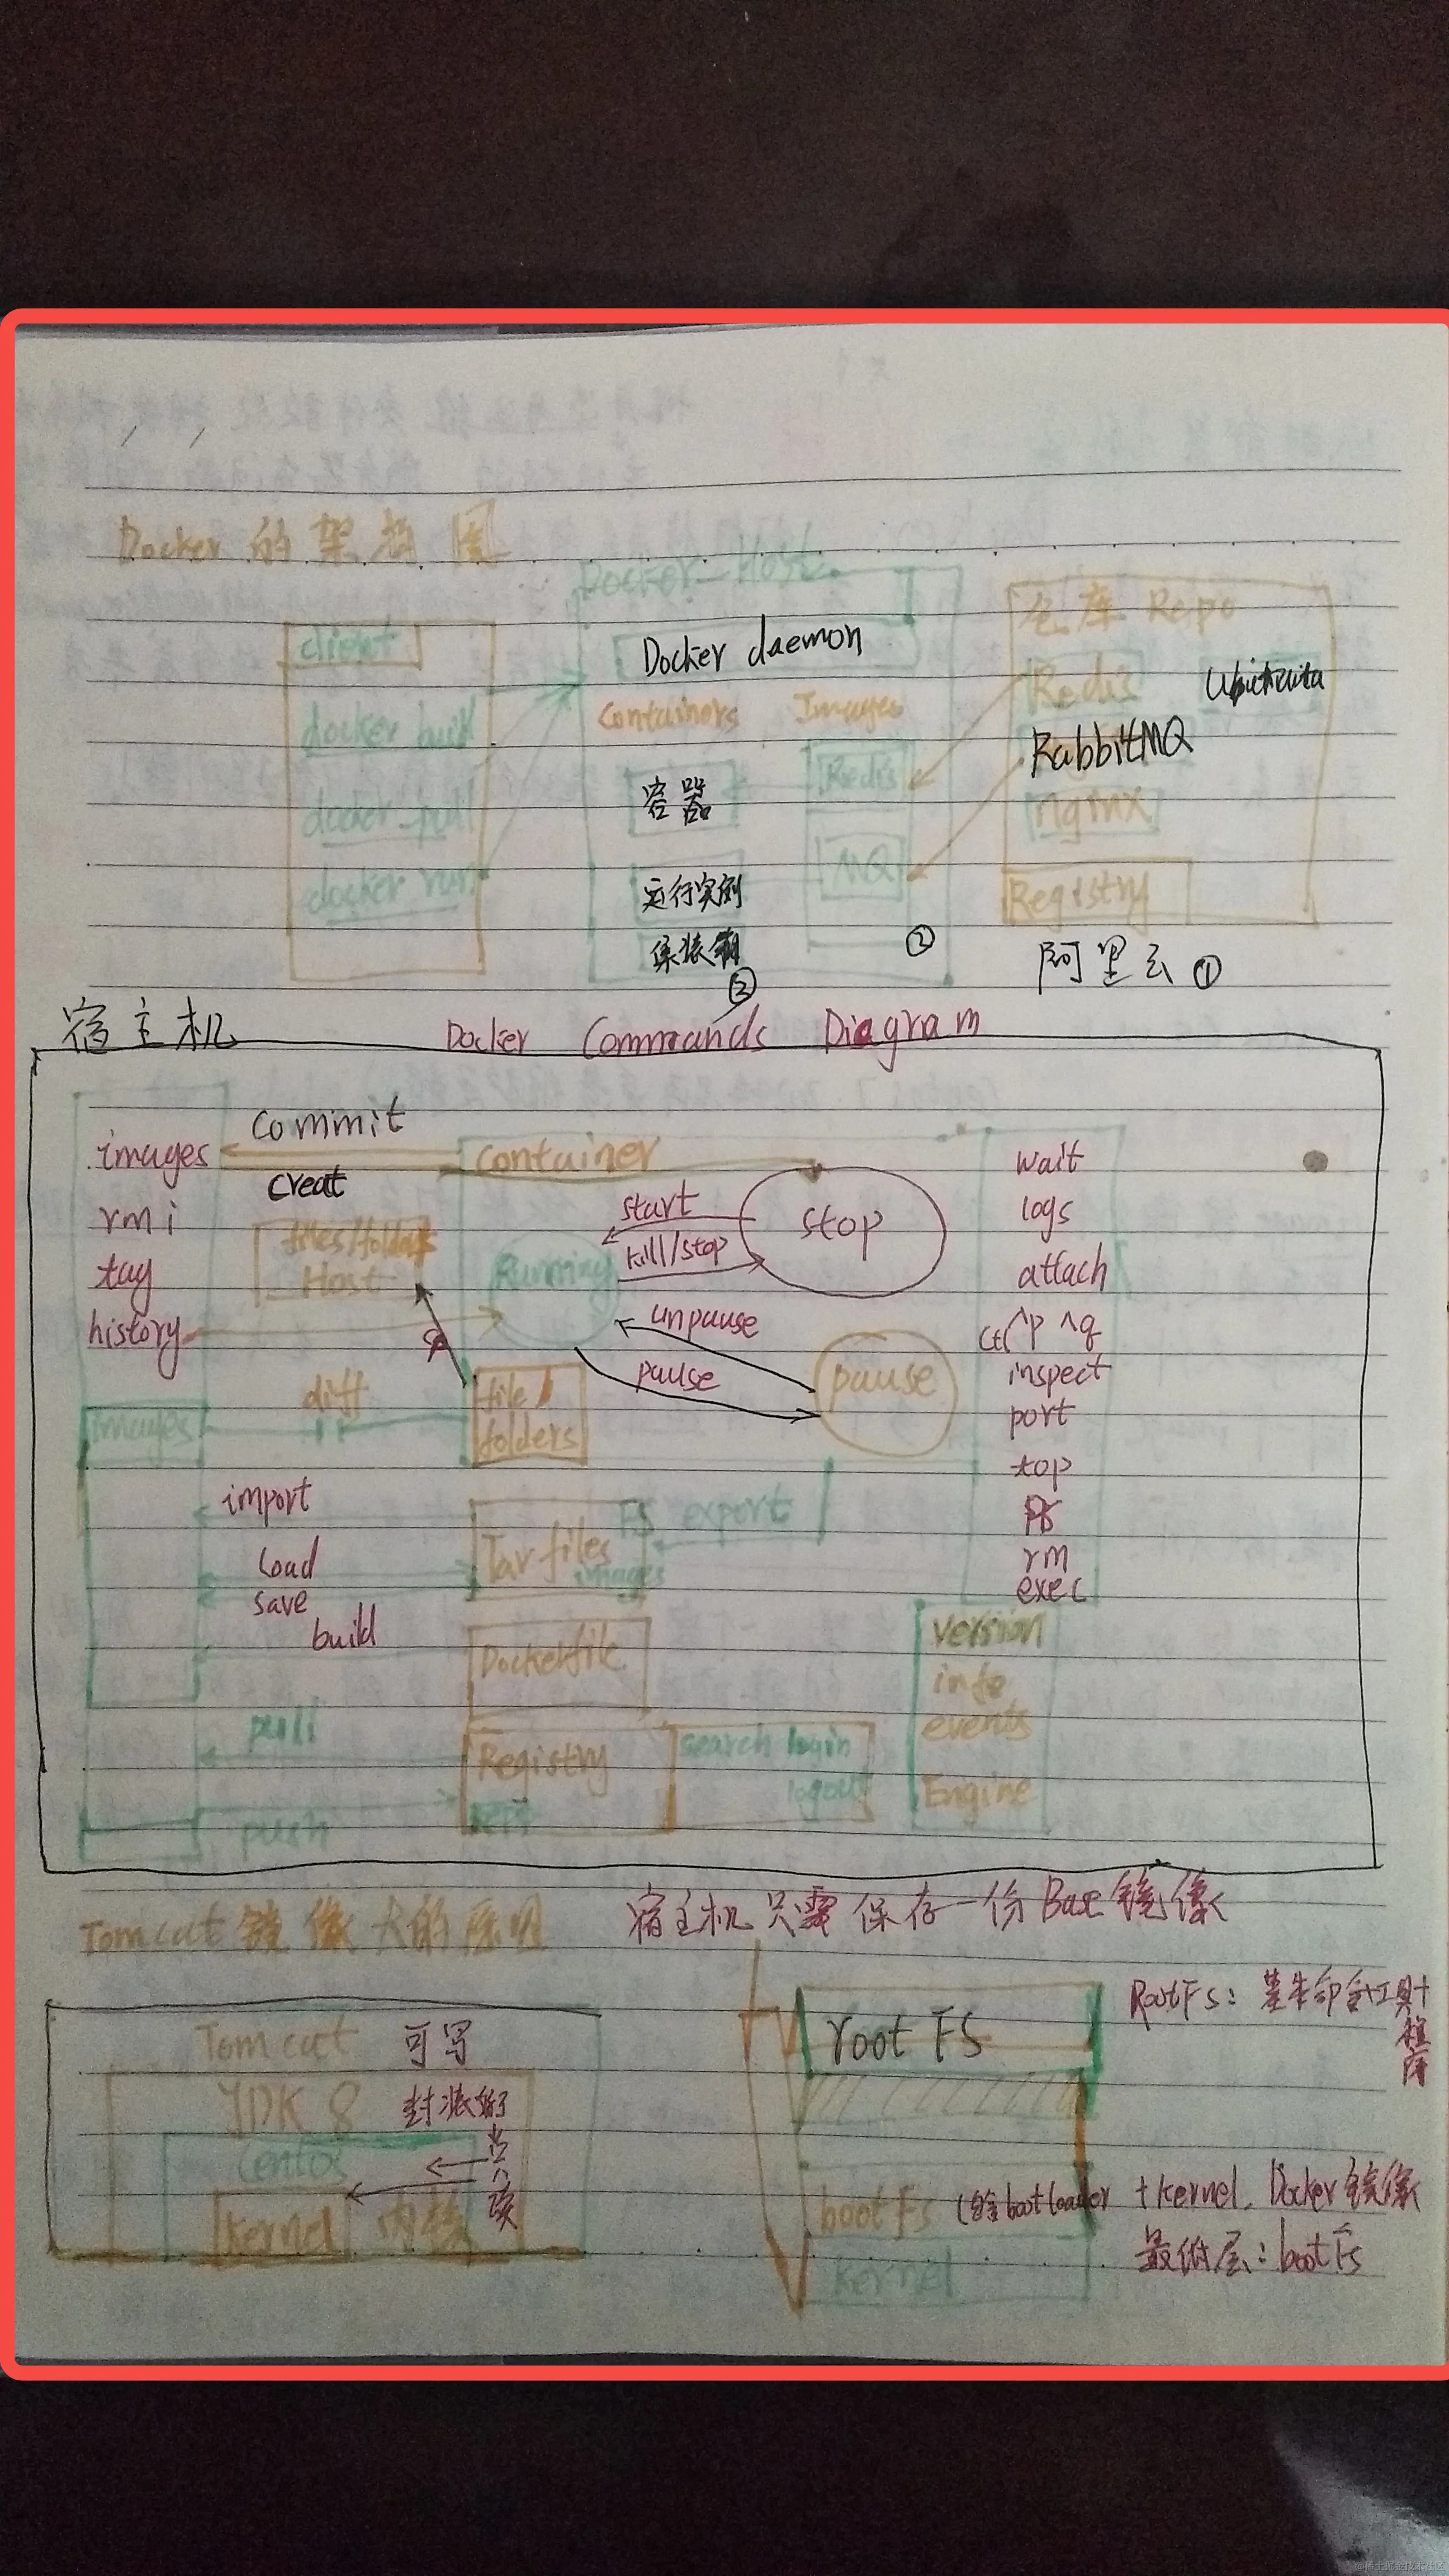 Docker 的架构图
Docker_Host
client
docker build
docker pull
docker run
Docker daemon
Containers Images
容器
运行实例
集装箱
③
Redis
MQ
②
仓库 Repo
Redis
RabbitMQ
nginx
Registry
阿里云 ①
宿主机
Docker Commands Diagram
images
rmi
tag
history
images
Commit
Creat
files/folders
Host
diff
import
Load
save
build
pull
push
container
Running
start
kill/stop
stop
unpause
pause
pause
file/
folders
FS export
Tar files
images
Dockerfile
Registry
search login
logout
wait
logs
attach
Ctrl ^p ^q
inspect
port
top
ps
rm
exec
version
info
events
Engine
Tomcat 镜像大的原因
宿主机只需保存一份Base镜像
Tomcat 可写
JDK 8 封装好了
Centos
Kernel 内核
都只读
root FS
RootFs: 基本命令+工具+程序库
bootFs (包含bootloader + kernel. Docker镜像
最低层: bootFs
kernel
@稀土掘金技术社区